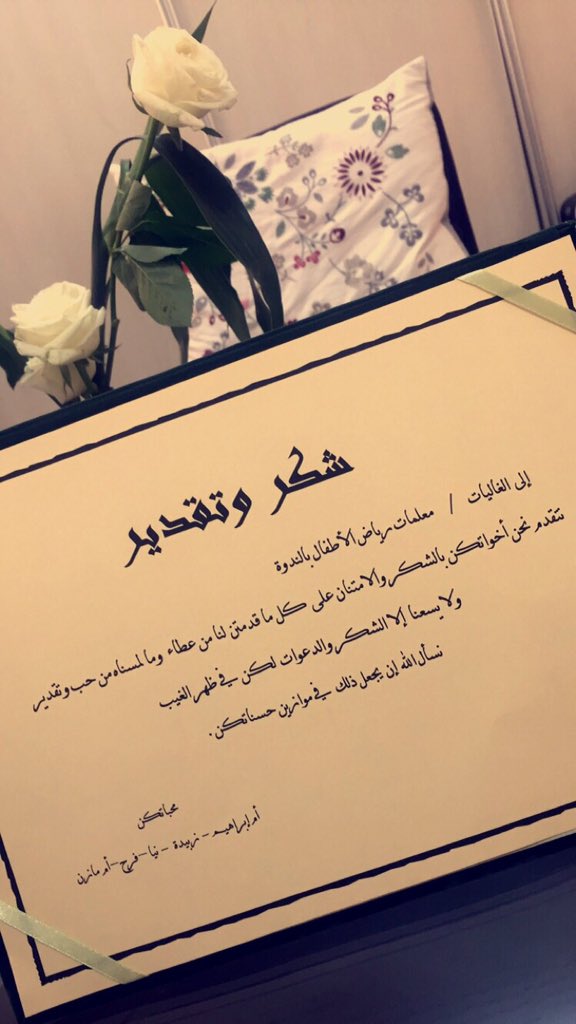 شكر وتقدير
إلى الغاليات / معلمات رياض الأطفال بالندوة
نتقدم نحن أخواتكن بالشكر والامتنان على كل ما قدمتن لنا من عطاء وما لمسناه من حب وتقدير
ولا يسعنا إلا الشكر والدعوات لكن في ظهر الغيب
نسأل الله إن يجعل ذلك في موازين حسناتكن .
محباتكن
أم إبراهيم - زبيدة - نيا - فرح - أم مازن